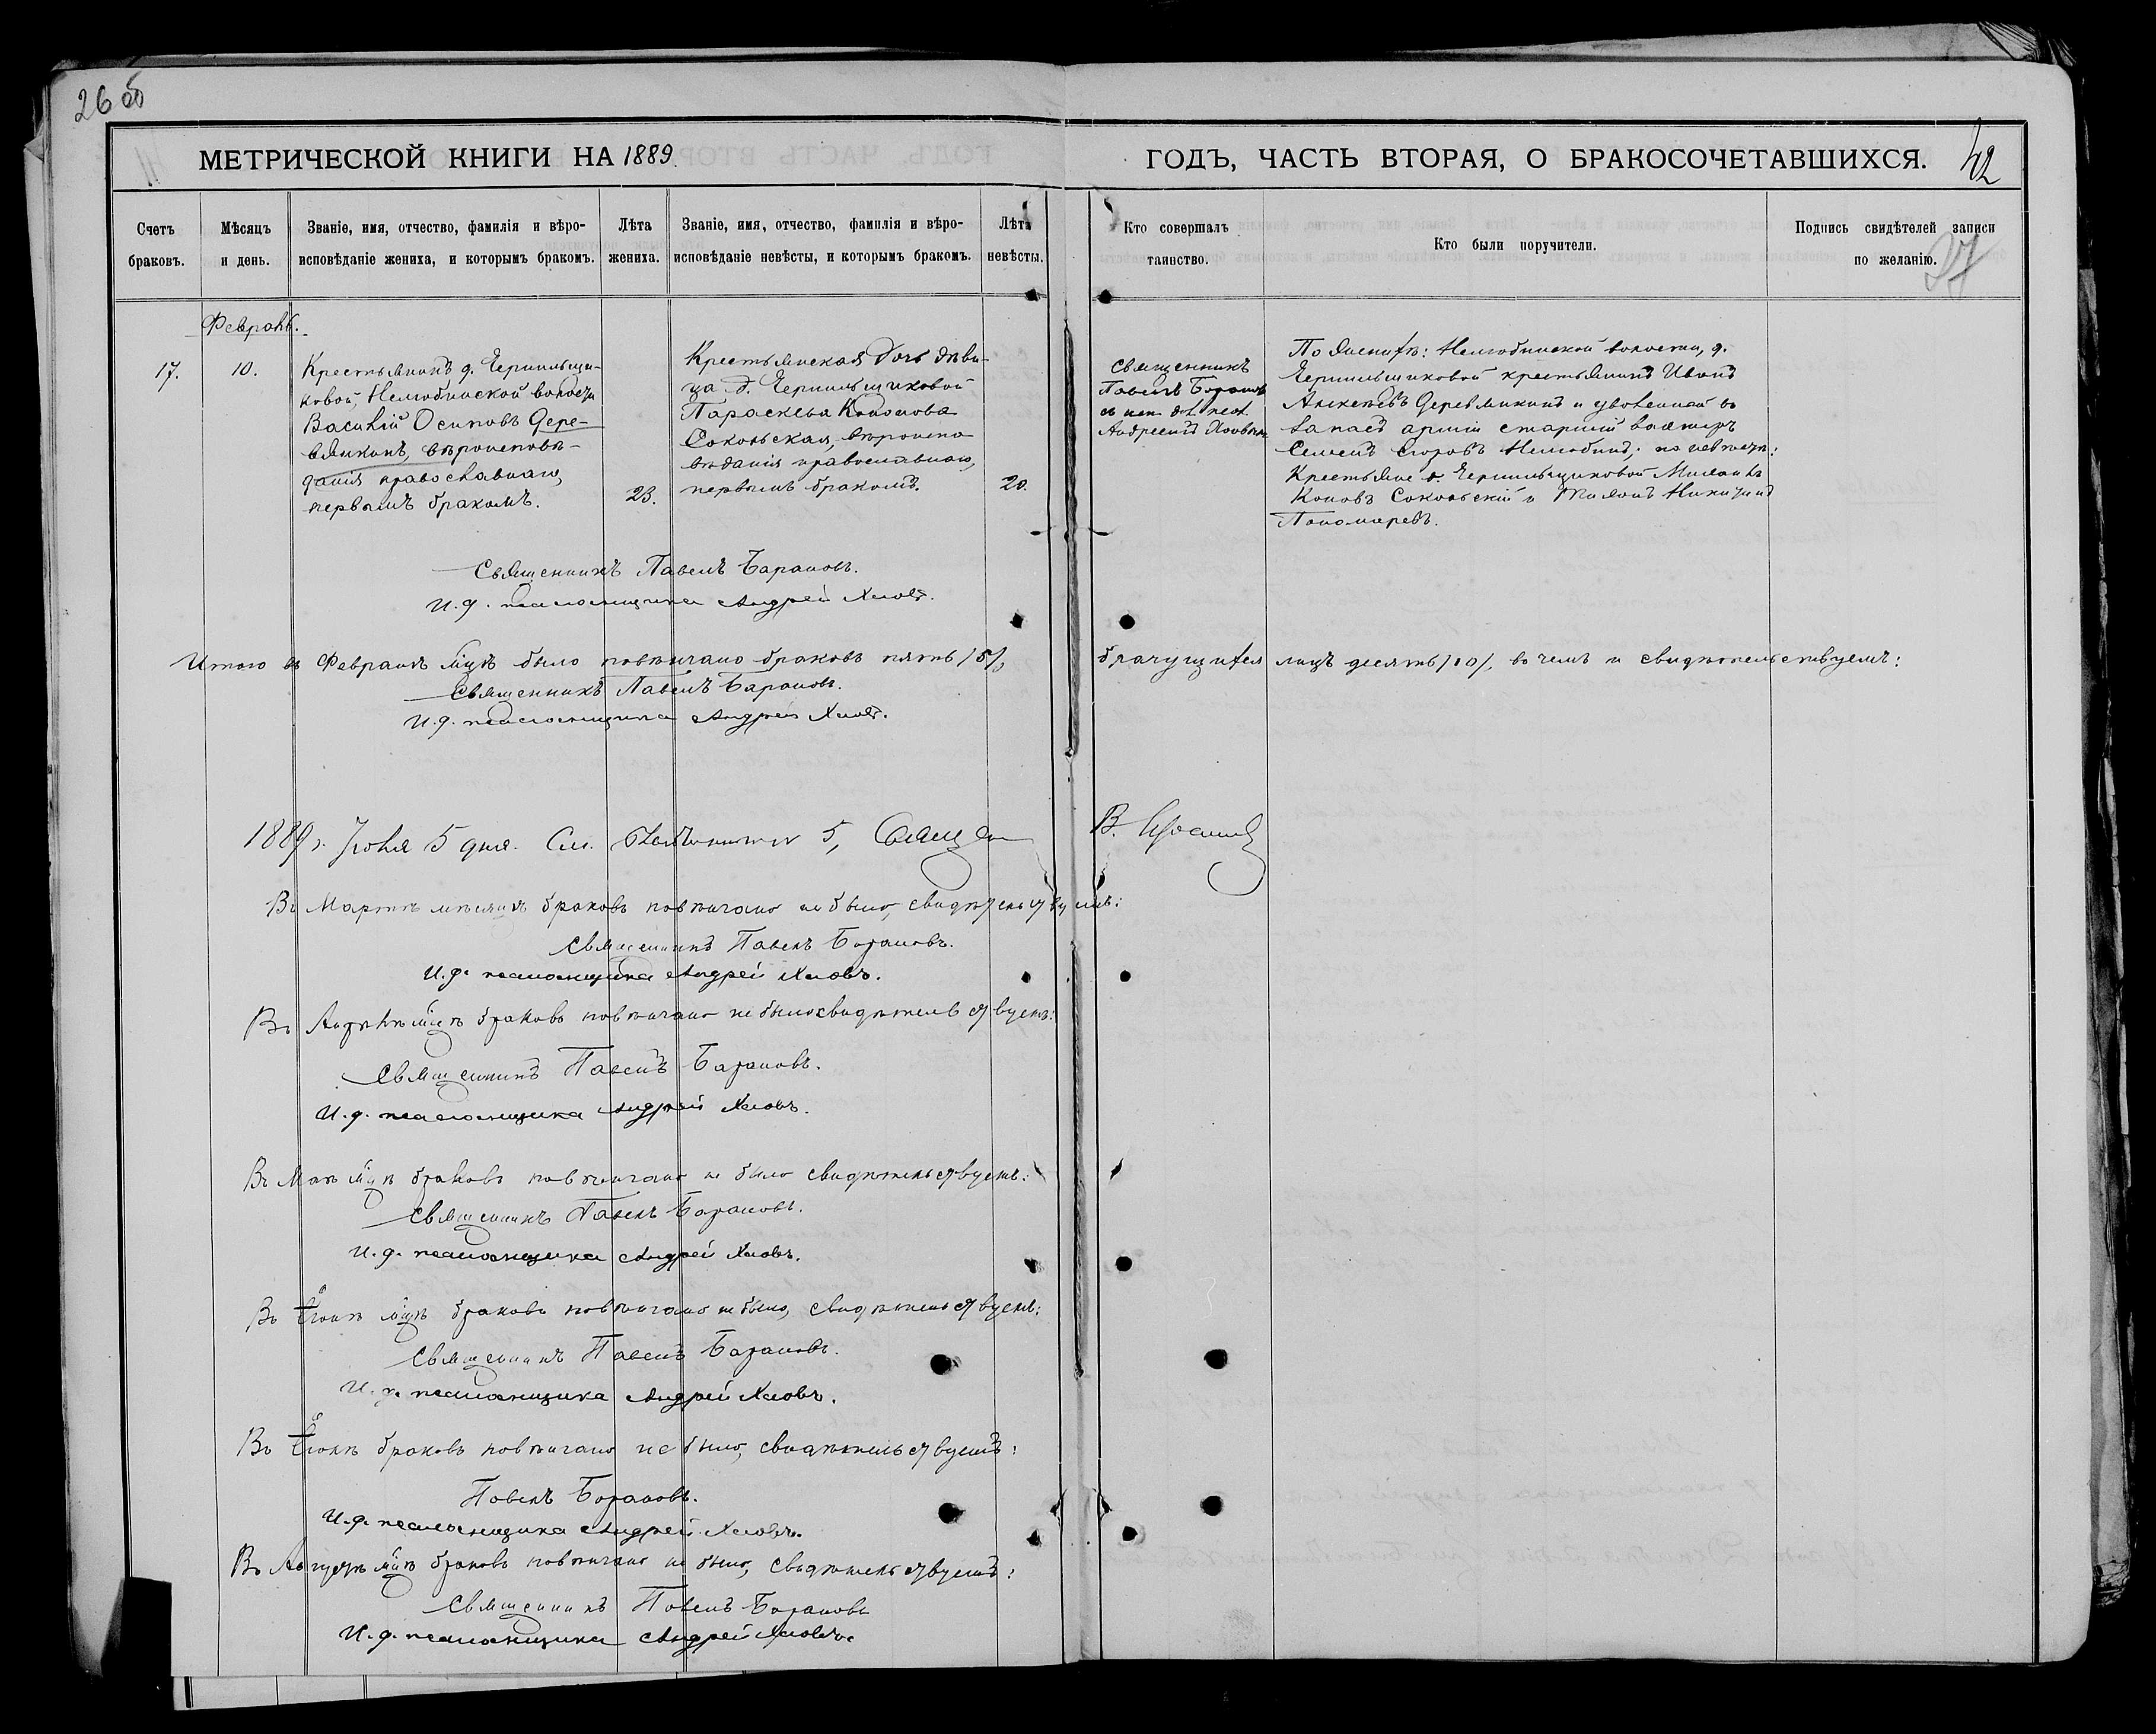 26 об
МЕТРИЧЕСКОЙ КНИГИ НА 1889
ГОДЪ, ЧАСТЬ ВТОРАЯ, О БРАКОСОЧЕТАВШИХСЯ.
42
37
Счетъ браковъ.
Мѣсяцъ и день.
Званіе, имя, отчество, фамилія и вѣро-
исповѣданіе жениха, и которымъ бракомъ.
Лѣта жениха.
Званіе, имя, отчество, фамилія и вѣро-
исповѣданіе невѣсты, и которымъ бракомъ.
Лѣта невѣсты.
Кто совершалъ таинство.
Кто были поручители.
Подпись свидѣтелей записи
по желанію.
Февраль.
17.
10.
Крестьянинъ д. Чернильщи-
ковой, Нелюбинской волости
Василій Осиповъ Дере-
вякинъ, вѣроисповѣ-
данія православнаго,
первымъ бракомъ.
23.
Крестьянская дочь дѣви-
ца д. Чернильщиковой
Параскева Кононова
Сокольская, вѣроиспо
вѣданія православнаго,
первымъ бракомъ.
20.
Священникъ
Павелъ Барановъ
съ исп. д.
Андреемъ
По женихѣ: Нелюбинской волости, д.
Чернильщиковой крестьянинъ Иванъ
Алексѣевъ Деревякинъ и уволенный въ
запасъ арміи старшій
Семенъ Егоровъ Нелюбинъ; по невѣстѣ:
Крестьяне д. Чернильщиковой Михаилъ
Коновъ Сокольскій и Никитинъ
Пономаревъ.
Священникъ Павелъ Барановъ.
И. д. псаломщика Андрей Хловъ.
Итого въ Февралѣ м͠цѣ было повѣнчано браковъ пять /5/,
брачущихся лицъ десять /10/, въ чемъ и свидѣтельствуемъ:
Священникъ Павелъ Барановъ.
И. д. псаломщика Андрей Хловъ.
1889 г. Іюня 5 дня. См. 5,
В.
Въ Мартѣ мѣсяцѣ браковъ повѣнчано не было, свидѣтельствуемъ:
Священникъ Павелъ Барановъ.
И. д. псаломщика Андрей Хловъ.
Въ Апрѣлѣ м͠цѣ браковъ повѣнчано не было свидѣтельствуемъ:
Священникъ Павелъ Барановъ.
И. д. псаломщика Андрей Хловъ.
Въ Маѣ м͠цѣ браковъ повѣнчано не было свидѣтельствуемъ:
Священникъ Павелъ Барановъ.
И. д. псаломщика Андрей Хловъ.
Въ Іюнѣ м͠цѣ браковъ повѣнчано не было, свидѣтельствуемъ:
Священникъ Павелъ Барановъ.
И. д. псаломщика Андрей Хловъ.
Въ Іюлѣ браковъ повѣнчано не было, свидѣтельствуемъ:
Павелъ Барановъ.
И. д. псаломщика Андрей Хловъ.
Въ Августѣ м͠цѣ браковъ повѣнчано не было, свидѣтельствуемъ:
Священникъ Павелъ Барановъ
И. д. псаломщика Андрей Хловъ.